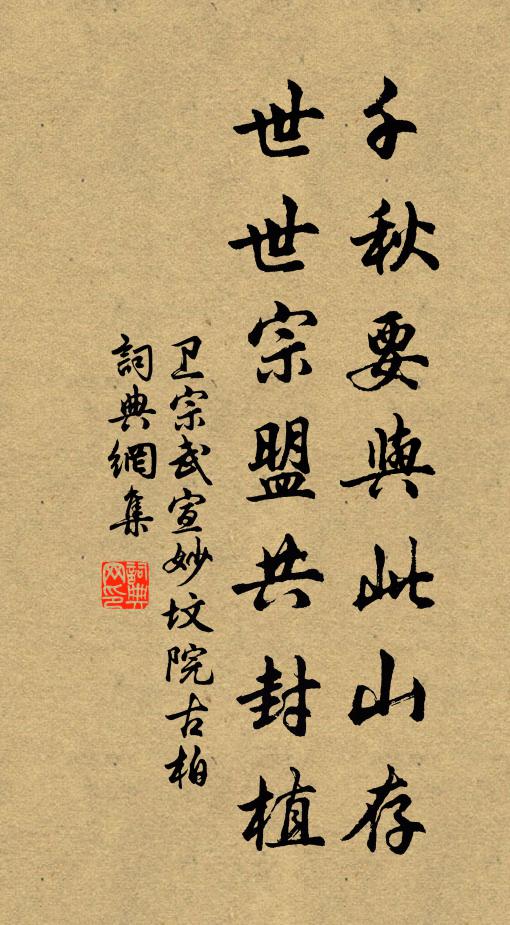 千秋要與此山存
世世宗盟共封植
卫宗武宣妙坟院古柏
詞典網集
詞典网印